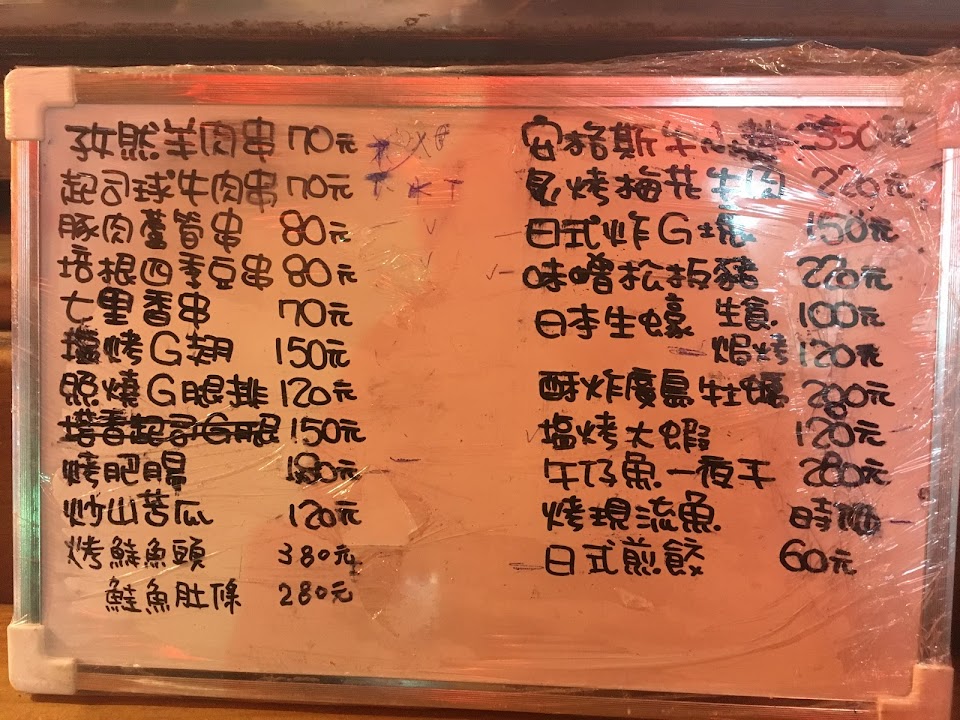 孜然羊肉串 70元
起司球牛肉串 70元
豚肉蘆筍串 80元
培根四季豆串 80元
七里香串 70元
塩烤G翅 150元
照燒G腿排 120元
塔香起司G腿 150元
烤肥腸 180元
炒山苦瓜 120元
烤鮭魚頭 380元
鮭魚肚條 280元
安格斯牛小排 350元
炙烤梅花牛肉 220元
日式炸G塊 150元
味噌松板豬 220元
日本生蠔 生食 100元
焗烤 120元
酥炸廣島牡蠣 280元
塩烤大蝦 120元
午仔魚一夜干 280元
烤現流魚 時價
日式煎餃 60元